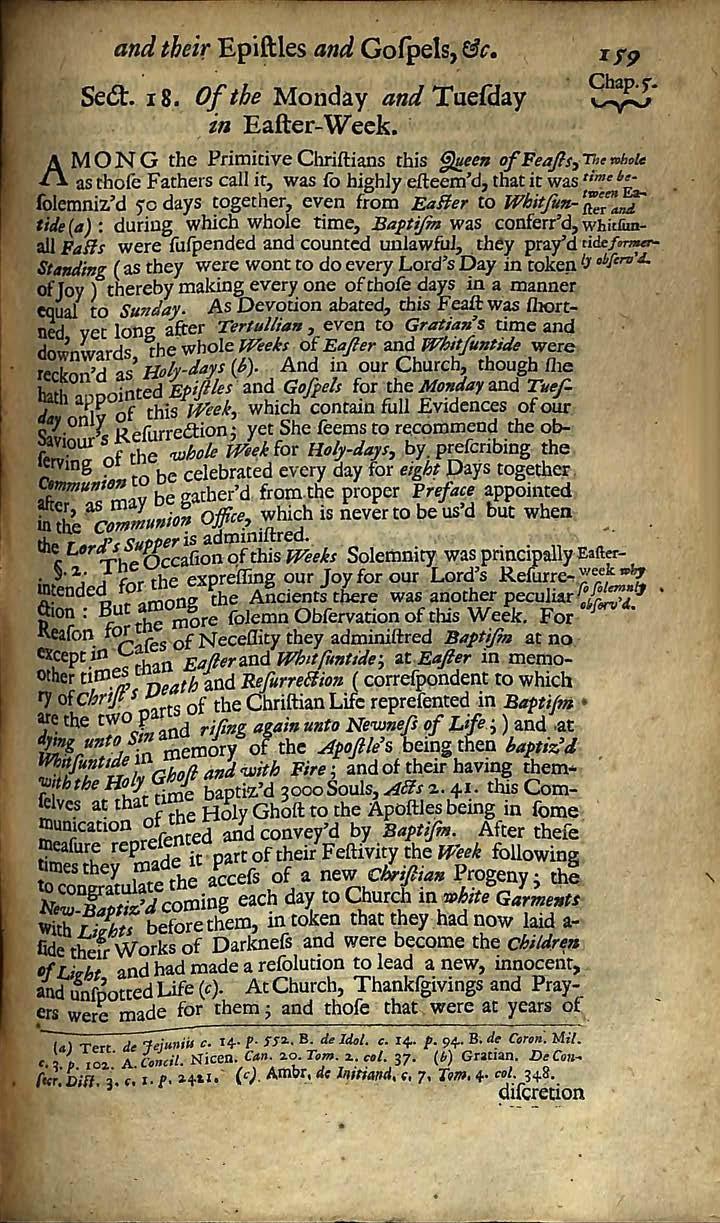 and their Epiſtles and Goſpels, &c.
159
Chap. 5.
Sect. 18. Of the Monday and Tueſday
in Eaſter-Week.
AMONG the Primitive Chriſtians this Queen of Feaſts,
as thoſe Fathers call it, was ſo highly eſteem'd, that it was
ſolemniz'd 50 days together, even from Eaſter to Whitſun-
tide (a) : during which whole time, Baptiſm was conferr'd,
all Faſts were ſuſpended and counted unlawful, they pray'd
Standing (as they were wont to do every Lord's Day in token
of Joy) thereby making every one of thoſe days in a manner
equal to Sunday. As Devotion abated, this Feaſt was ſhort-
ned, yet long after Tertullian, even to Gratian's time and
downwards, the whole Weeks of Eaſter and Whitſuntide were
reckon'd as Holy-days (b). And in our Church, though ſhe
hath appointed Epiſtles and Goſpels for the Monday and Tueſ-
day only of this Week, which contain full Evidences of our
Saviour's Reſurrection; yet She ſeems to recommend the ob-
ſerving of the whole Week for Holy-days, by preſcribing the
Communion to be celebrated every day for eight Days together
after, as may be gather'd from the proper Preface appointed
in the Communion Office, which is never to be us'd but when
the Lord's Supper is adminiſtred.
The whole
time be-
tween Ea-
ſter and
Whitſun-
tide former-
ly obſerv'd.
§. 2. The Occaſion of this Weeks Solemnity was principally
intended for the expreſſing our Joy for our Lord's Reſurre-
ction : But among the Ancients there was another peculiar
Reaſon for the more ſolemn Obſervation of this Week. For
except in Caſes of Neceſſity they adminiſtred Baptiſm at no
other times than Eaſter and Whitſuntide; at Eaſter in memo-
ry of Chriſt's Death and Reſurrection (correſpondent to which
are the two parts of the Chriſtian Life repreſented in Baptiſm
dying unto Sin and riſing again unto Newneſs of Life;) and at
Whitſuntide in memory of the Apoſtle's being then baptiz'd
with the Holy Ghoſt and with Fire; and of their having them-
ſelves at that time baptiz'd 3000 Souls, Acts 2. 41. this Com-
munication of the Holy Ghoſt to the Apoſtles being in ſome
meaſure repreſented and convey'd by Baptiſm. After theſe
times they made it part of their Feſtivity the Week following
to congratulate the acceſs of a new Chriſtian Progeny; the
New-Baptiz'd coming each day to Church in white Garments
with Lights before them, in token that they had now laid a-
ſide their Works of Darkneſs and were become the Children
of Light, and had made a reſolution to lead a new, innocent,
and unſpotted Life (c). At Church, Thankſgivings and Pray-
ers were made for them; and thoſe that were at years of
Eaſter-
week why
ſo ſolemnly
obſerv'd.
(a) Tert. de Jejuniis c. 14. p. 552. B. de Idol. c. 14. p. 94. B. de Coron. Mil.
c. 3. p. 102. A. Concil. Nicen. Can. 20. Tom. 2. col. 37. (b) Gratian. De Con-
ſecr. Diſt. 3. c. 1. p. 2421. (c) Ambr. de Initiand. c. 7. Tom. 4. col. 348.
diſcretion